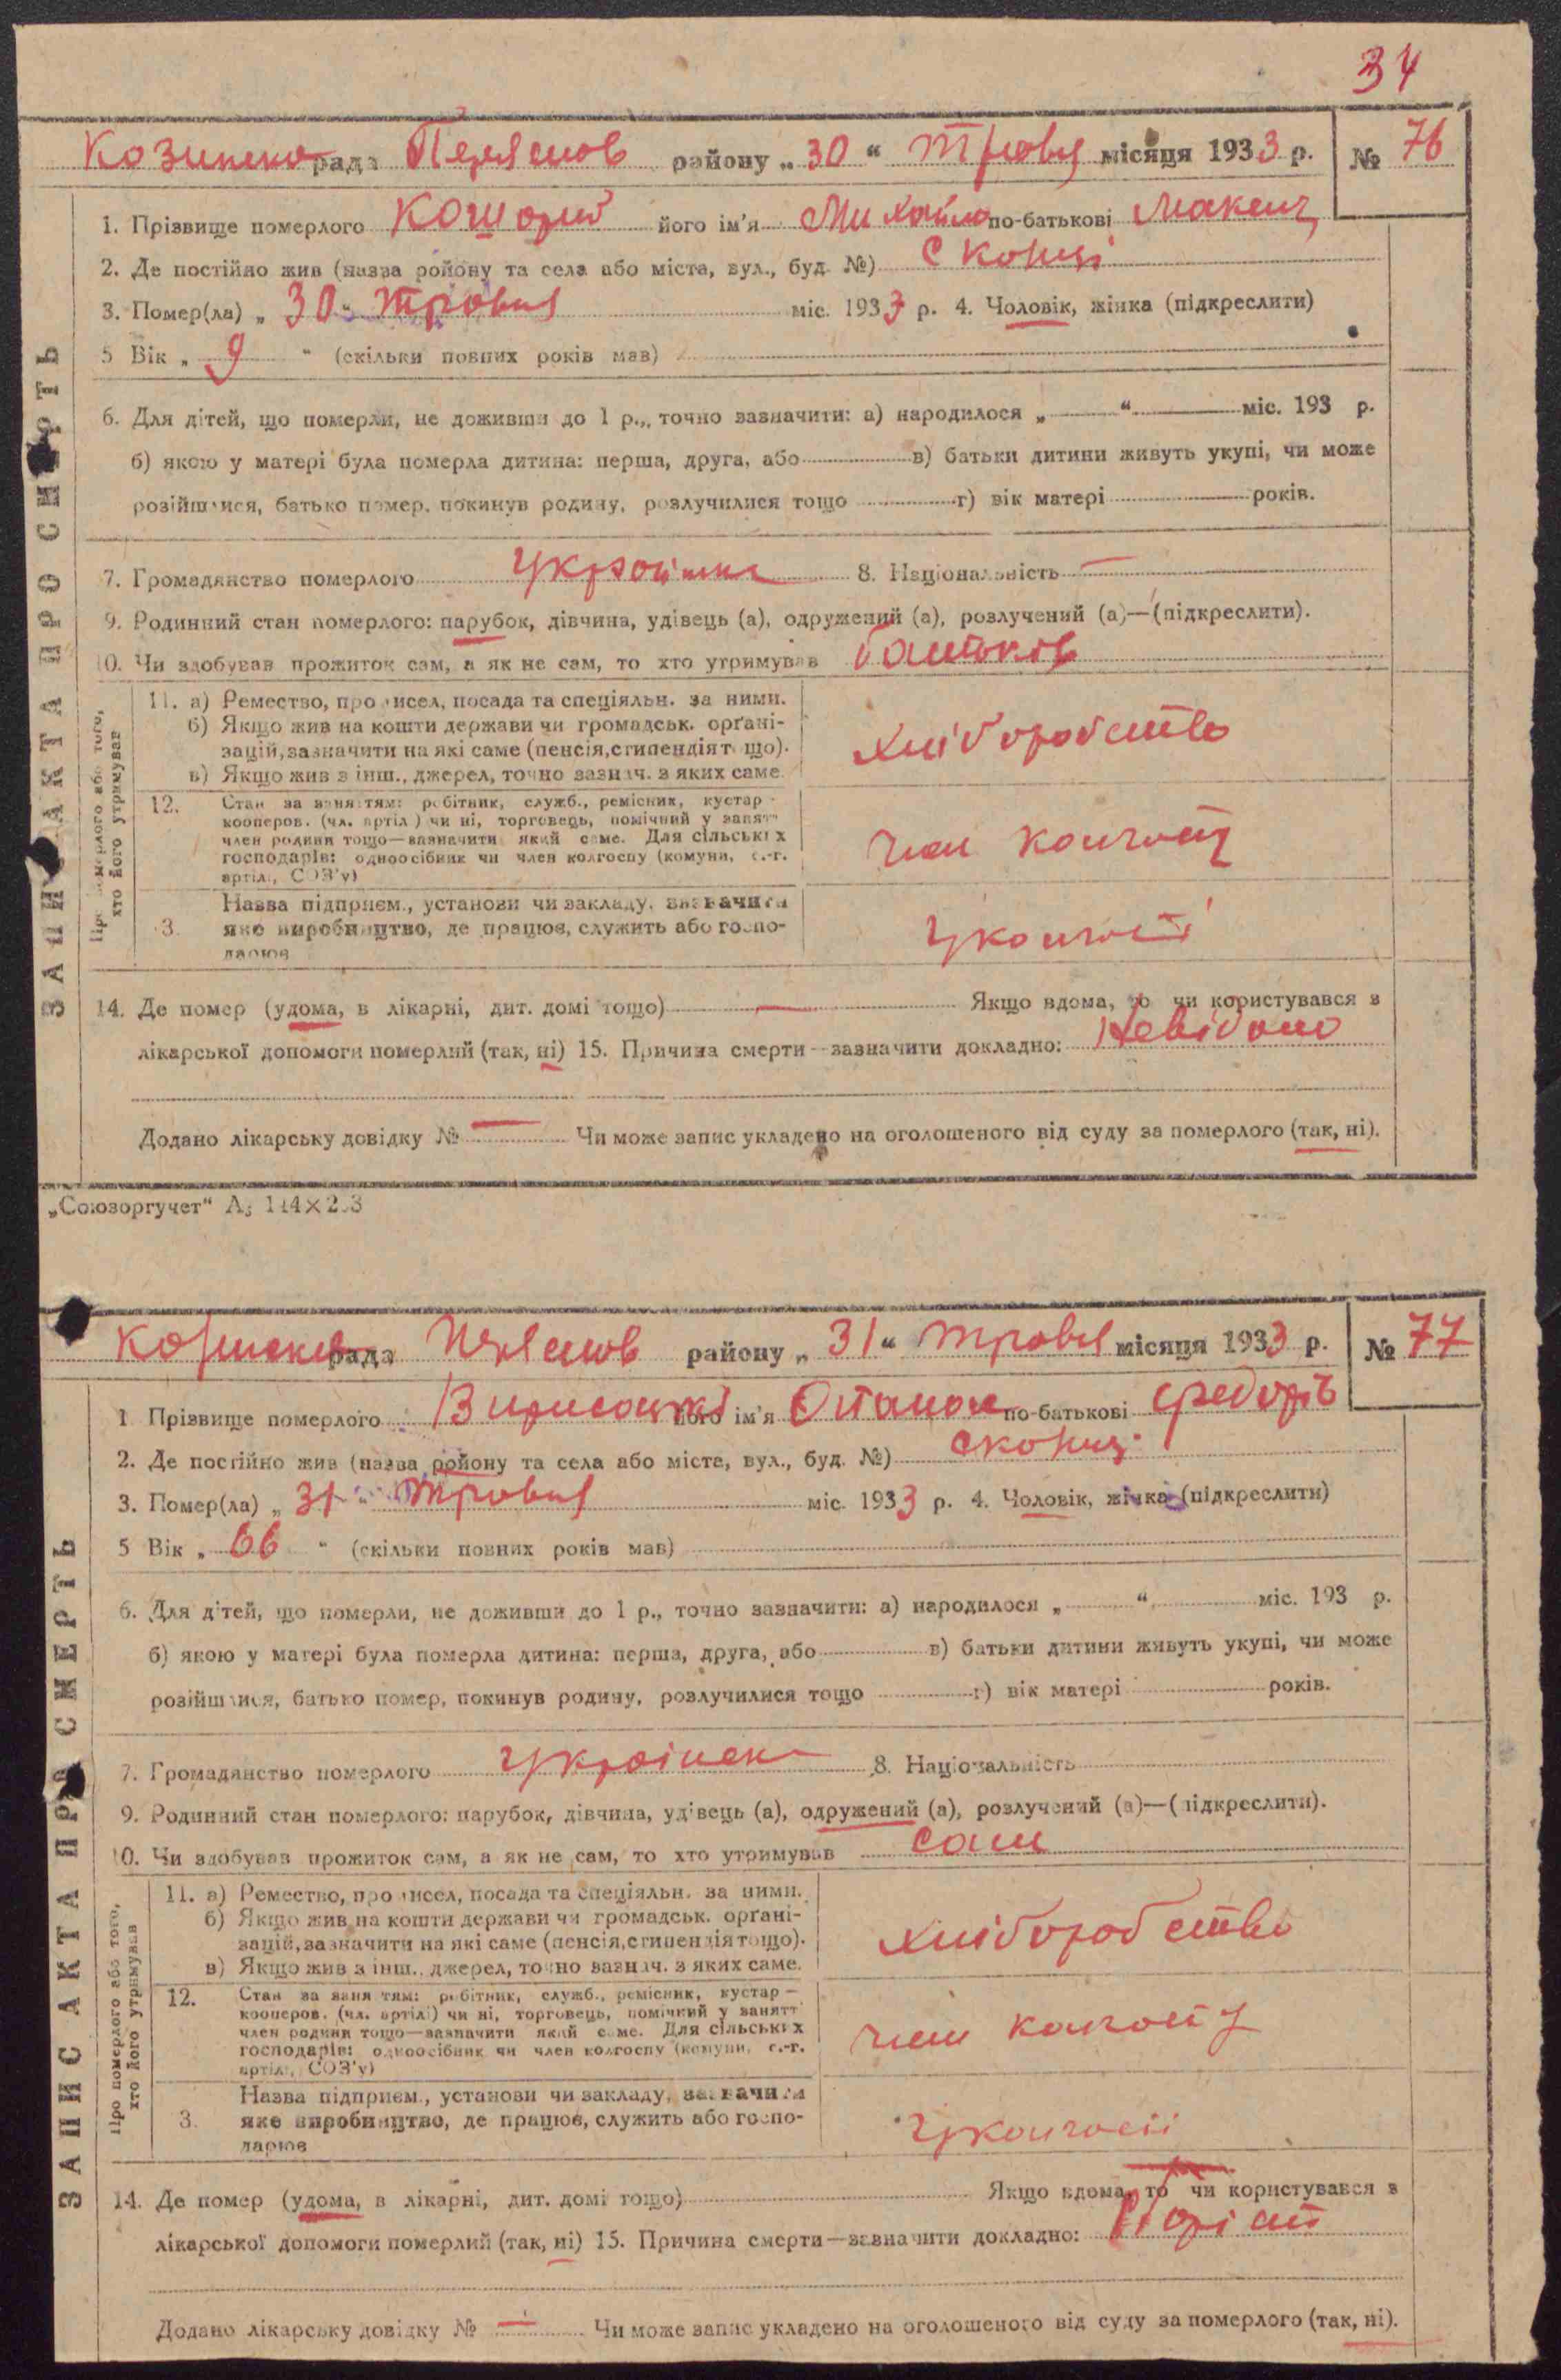 34
рада Переяслов району „30“ Травня місяця 1933 р. № 76
1. Прізвище померлого його ім'я Михайло по-батькові
2. Де постійно жив (назва ройону та села або міста, вул., буд. №)
3. Помер(ла) „ 30 “ Травня міс. 1933 р. 4. Чоловік, жінка (підкреслити)
5 Вік „ 9 “ (скільки повних років мав)
6. Для дітей, що померли, не доживши до 1 р., точно зазначити: а) народилося „ “ міс. 193 р.
б) якою у матері була померла дитина: перша, друга, або в) батьки дитини живуть укупі, чи може
розійшлися, батько помер, покинув родину, розлучилися тощо г) вік матері років.
7. Громадянство померлого 8. Національність —
9. Родинний стан померлого: парубок, дівчина, удівець (а), одружений (а), розлучений (а)—(підкреслити).
10. Чи здобував прожиток сам, а як не сам, то хто утримував батьків
11. а) Ремество, промисел, посада та спеціяльн. за ними.
б) Якщо жив на кошти держави чи громадськ. орґані-
зацій, зазначити на які саме (пенсія, стипендія тощо).
в) Якщо жив з інш., джерел, точно зазнач. з яких саме.
хліборобство
12. Стан за заняттям: робітник, служб., ремісник, кустар-
кооперов. (чл. артілі) чи ні, торговець, помічний у занятт
член родини тощо—зазначити який саме. Для сільських
господарів: одноосібник чи член колгоспу (комуни, с.-г.
артілі, СОЗ'у)
член колгоспу
3. Назва підприєм., установи чи закладу, зазначити
яке виробництво, де працює, служить або госпо-
дарює
у колгоспі
14. Де помер (удома, в лікарні, дит. домі тощо) — Якщо вдома, то чи користувався з
лікарської допомоги померлий (так, ні) 15. Причина смерти—зазначити докладно: Невідомо
Додано лікарську довідку № — Чи може запис укладено на оголошеного від суду за померлого (так, ні).
ЗАПИС АКТА ПРО СМЕРТЬ
Про померлого або того,
хто його утримував
„Союзоргучет“
рада району „ 31 “ Травня місяця 1933 р. № 77
1 Прізвище померлого його ім'я по-батькові Федорів
2. Де постійно жив (назва ройону та села або міста, вул., буд. №)
3. Помер(ла) „ 31 “ Травня міс. 1933 р. 4. Чоловік, жінка (підкреслити)
5 Вік „ 66 “ (скільки повних років мав)
6. Для дітей, що померли, не доживши до 1 р., точно зазначити: а) народилося „ “ міс. 193 р.
б) якою у матері була померла дитина: перша, друга, або в) батьки дитини живуть укупі, чи може
розійшлися, батько помер, покинув родину, розлучилися тощо г) вік матері років.
7. Громадянство померлого 8. Національність
9. Родинний стан померлого: парубок, дівчина, удівець (а), одружений (а), розлучений (а)—(підкреслити).
10. Чи здобував прожиток сам, а як не сам, то хто утримував сам
11. а) Ремество, промисел, посада та спеціяльн. за ними.
б) Якщо жив на кошти держави чи громадськ. орґані-
зацій, зазначити на які саме (пенсія, стипендія тощо).
в) Якщо жив з інш., джерел, точно зазнач. з яких саме.
хліборобство
12. Стан за заняттям: робітник, служб., ремісник, кустар—
кооперов. (чл. артілі) чи ні, торговець, помічний у занятт
член родини тощо—зазначити який саме. Для сільських
господарів: одноосібник чи член колгоспу (комуни, с.-г.
артілі, СОЗ'у)
член колгоспу
3. Назва підприєм., установи чи закладу, зазначити
яке виробництво, де працює, служить або госпо-
дарює
у колгоспі
14. Де помер (удома, в лікарні, дит. домі тощо) Якщо вдома, то чи користувався з
лікарської допомоги померлий (так, ні) 15. Причина смерти—зазначити докладно:
Додано лікарську довідку № — Чи може запис укладено на оголошеного від суду за померлого (так, ні).
ЗАПИС АКТА ПРО СМЕРТЬ
Про померлого або того,
хто його утримував